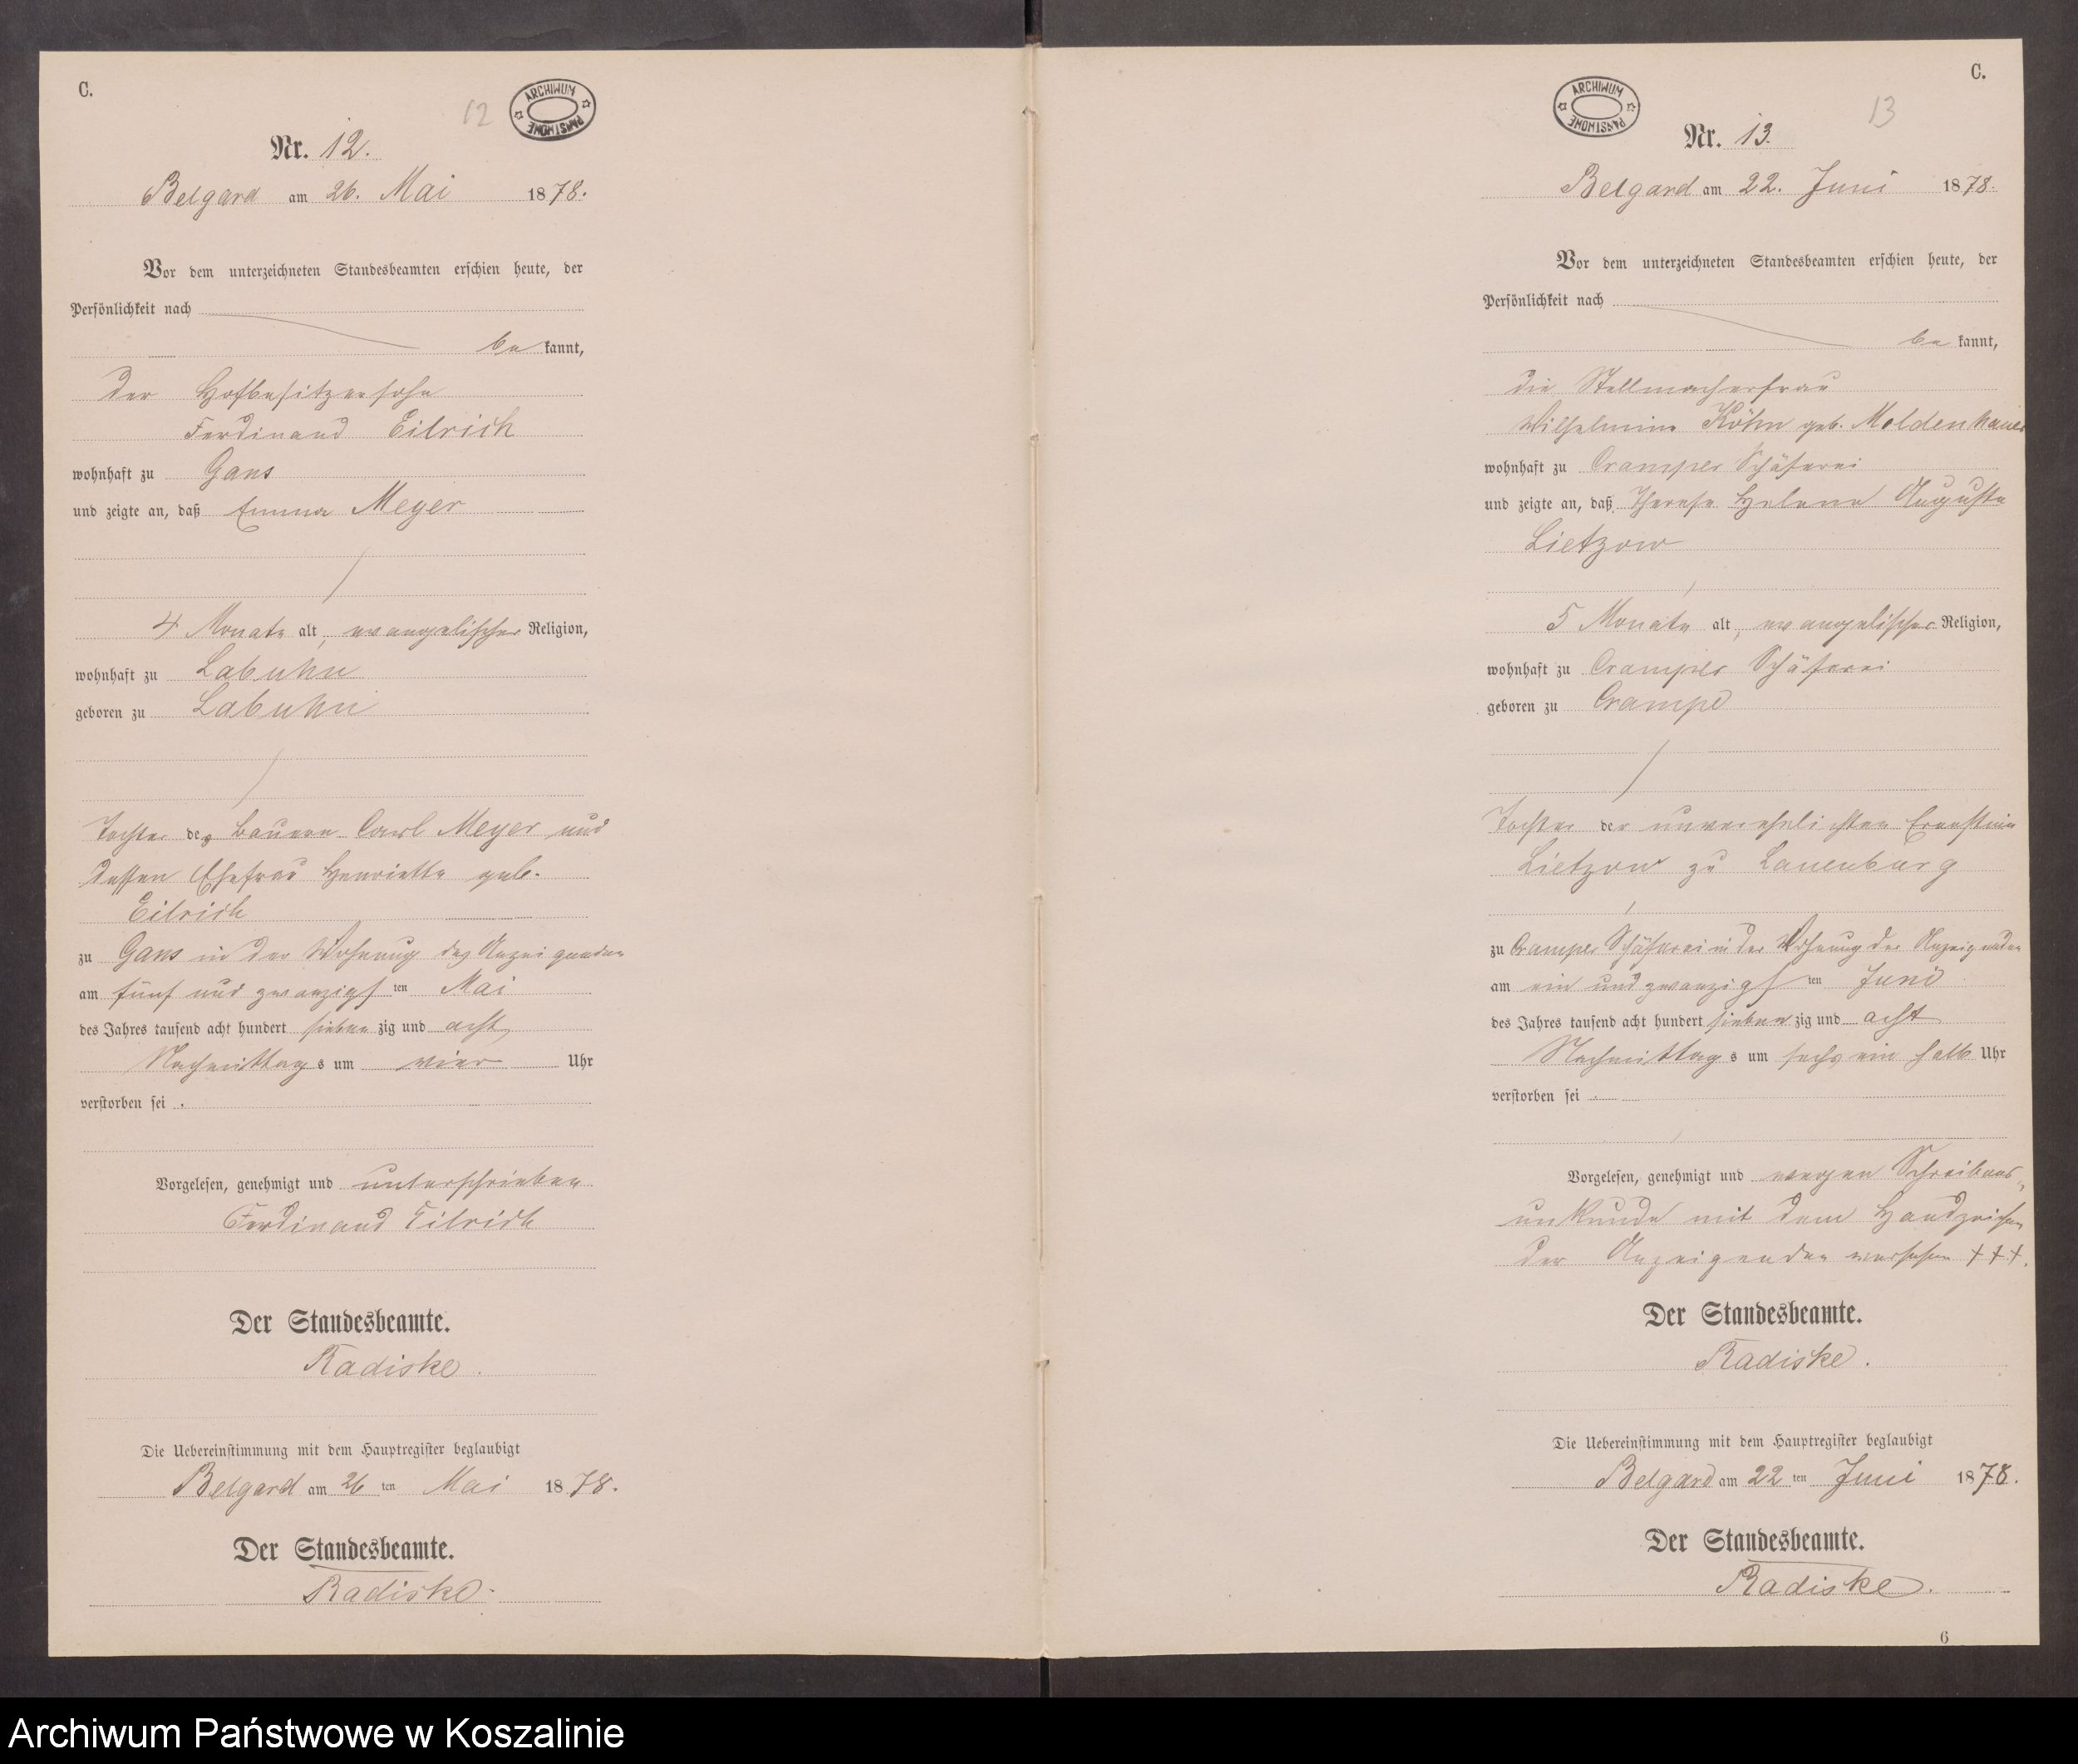 C.
12
ARCHIWUM PAŃSTWOWE
Nr. 12.
Belgard am 26. Mai 1878.
Vor dem unterzeichneten Standesbeamten erschien heute, der
Persönlichkeit nach
be kannt,
der Hofbesitzersohn
Ferdinand Eilrich
wohnhaft zu Gans
und zeigte an, daß Emma Meyer
4 Monate alt, evangelischer Religion,
wohnhaft zu Labuhn
geboren zu Labuhn
Tochter des Bauern Carl Meyer und
dessen Ehefrau Henriette geb.
Eilrich
zu Gans in der Wohnung des Anzeigenden
am fünf und zwanzigsten Mai
des Jahres tausend acht hundert siebenzig und acht
Nachmittags um vier Uhr
verstorben sei.
Vorgelesen, genehmigt und unterschrieben
Ferdinand Eilrich
Der Standesbeamte.
Radiske.
Die Uebereinstimmung mit dem Hauptregister beglaubigt
Belgard am 26ten Mai 1878.
Der Standesbeamte.
Radiske.
C.
13
ARCHIWUM PAŃSTWOWE
Nr. 13.
Belgard am 22. Juni 1878.
Vor dem unterzeichneten Standesbeamten erschien heute, der
Persönlichkeit nach
be kannt,
die Stellmacherfrau
Wilhelmine Köhn geb. Moldenhauer
wohnhaft zu Cramper Schäferei
und zeigte an, daß Therese Helene Auguste
Lietzow
5 Monate alt, evangelischer Religion,
wohnhaft zu Cramper Schäferei
geboren zu Crampe
Tochter der unverehelichten Ernestine
Lietzow zu Lauenburg
zu Cramper Schäferei in der Wohnung der Anzeigenden
am ein und zwanzigsten Juni
des Jahres tausend acht hundert siebenzig und acht
Nachmittags um sechs ein halb Uhr
verstorben sei.
Vorgelesen, genehmigt und wegen Schreibens-
unkunde mit dem Handzeichen
der Anzeigenden versehen +++.
Der Standesbeamte.
Radiske.
Die Uebereinstimmung mit dem Hauptregister beglaubigt
Belgard am 22ten Juni 1878.
Der Standesbeamte.
Radiske.
6
Archiwum Państwowe w Koszalinie